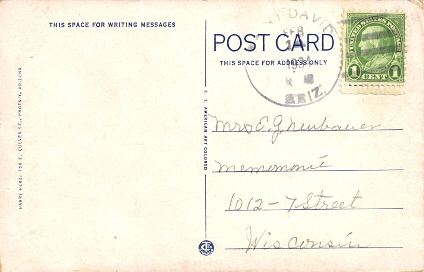 THIS SPACE FOR WRITING MESSAGES
POST CARD
THIS SPACE FOR ADDRESS ONLY
DAVID
FEB
14
ARIZ.
UNITED STATES POSTAGE
1 CENT 1
Mrs E. G. Neubauer
Memomonie
1012-7 Street
Wisconsin
HARRY HERZ, 724 E. CULVER ST., PHOENIX, ARIZONA
C. T. AMERICAN ART COLORED